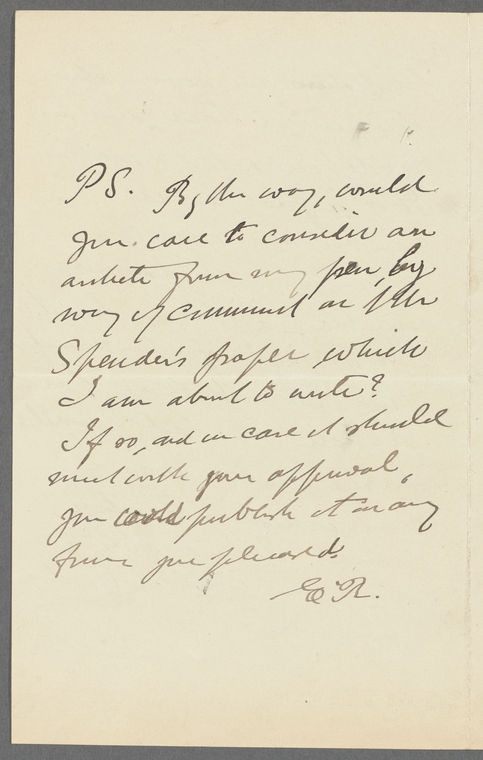 PS. By the way, would
you care to consider an
article from my pen, by
way of comment on Mr
Spender's paper which
I am about to write?
If so, and in case it should
meet with your approval,
you could publish it in any
form you pleased.
E. R.